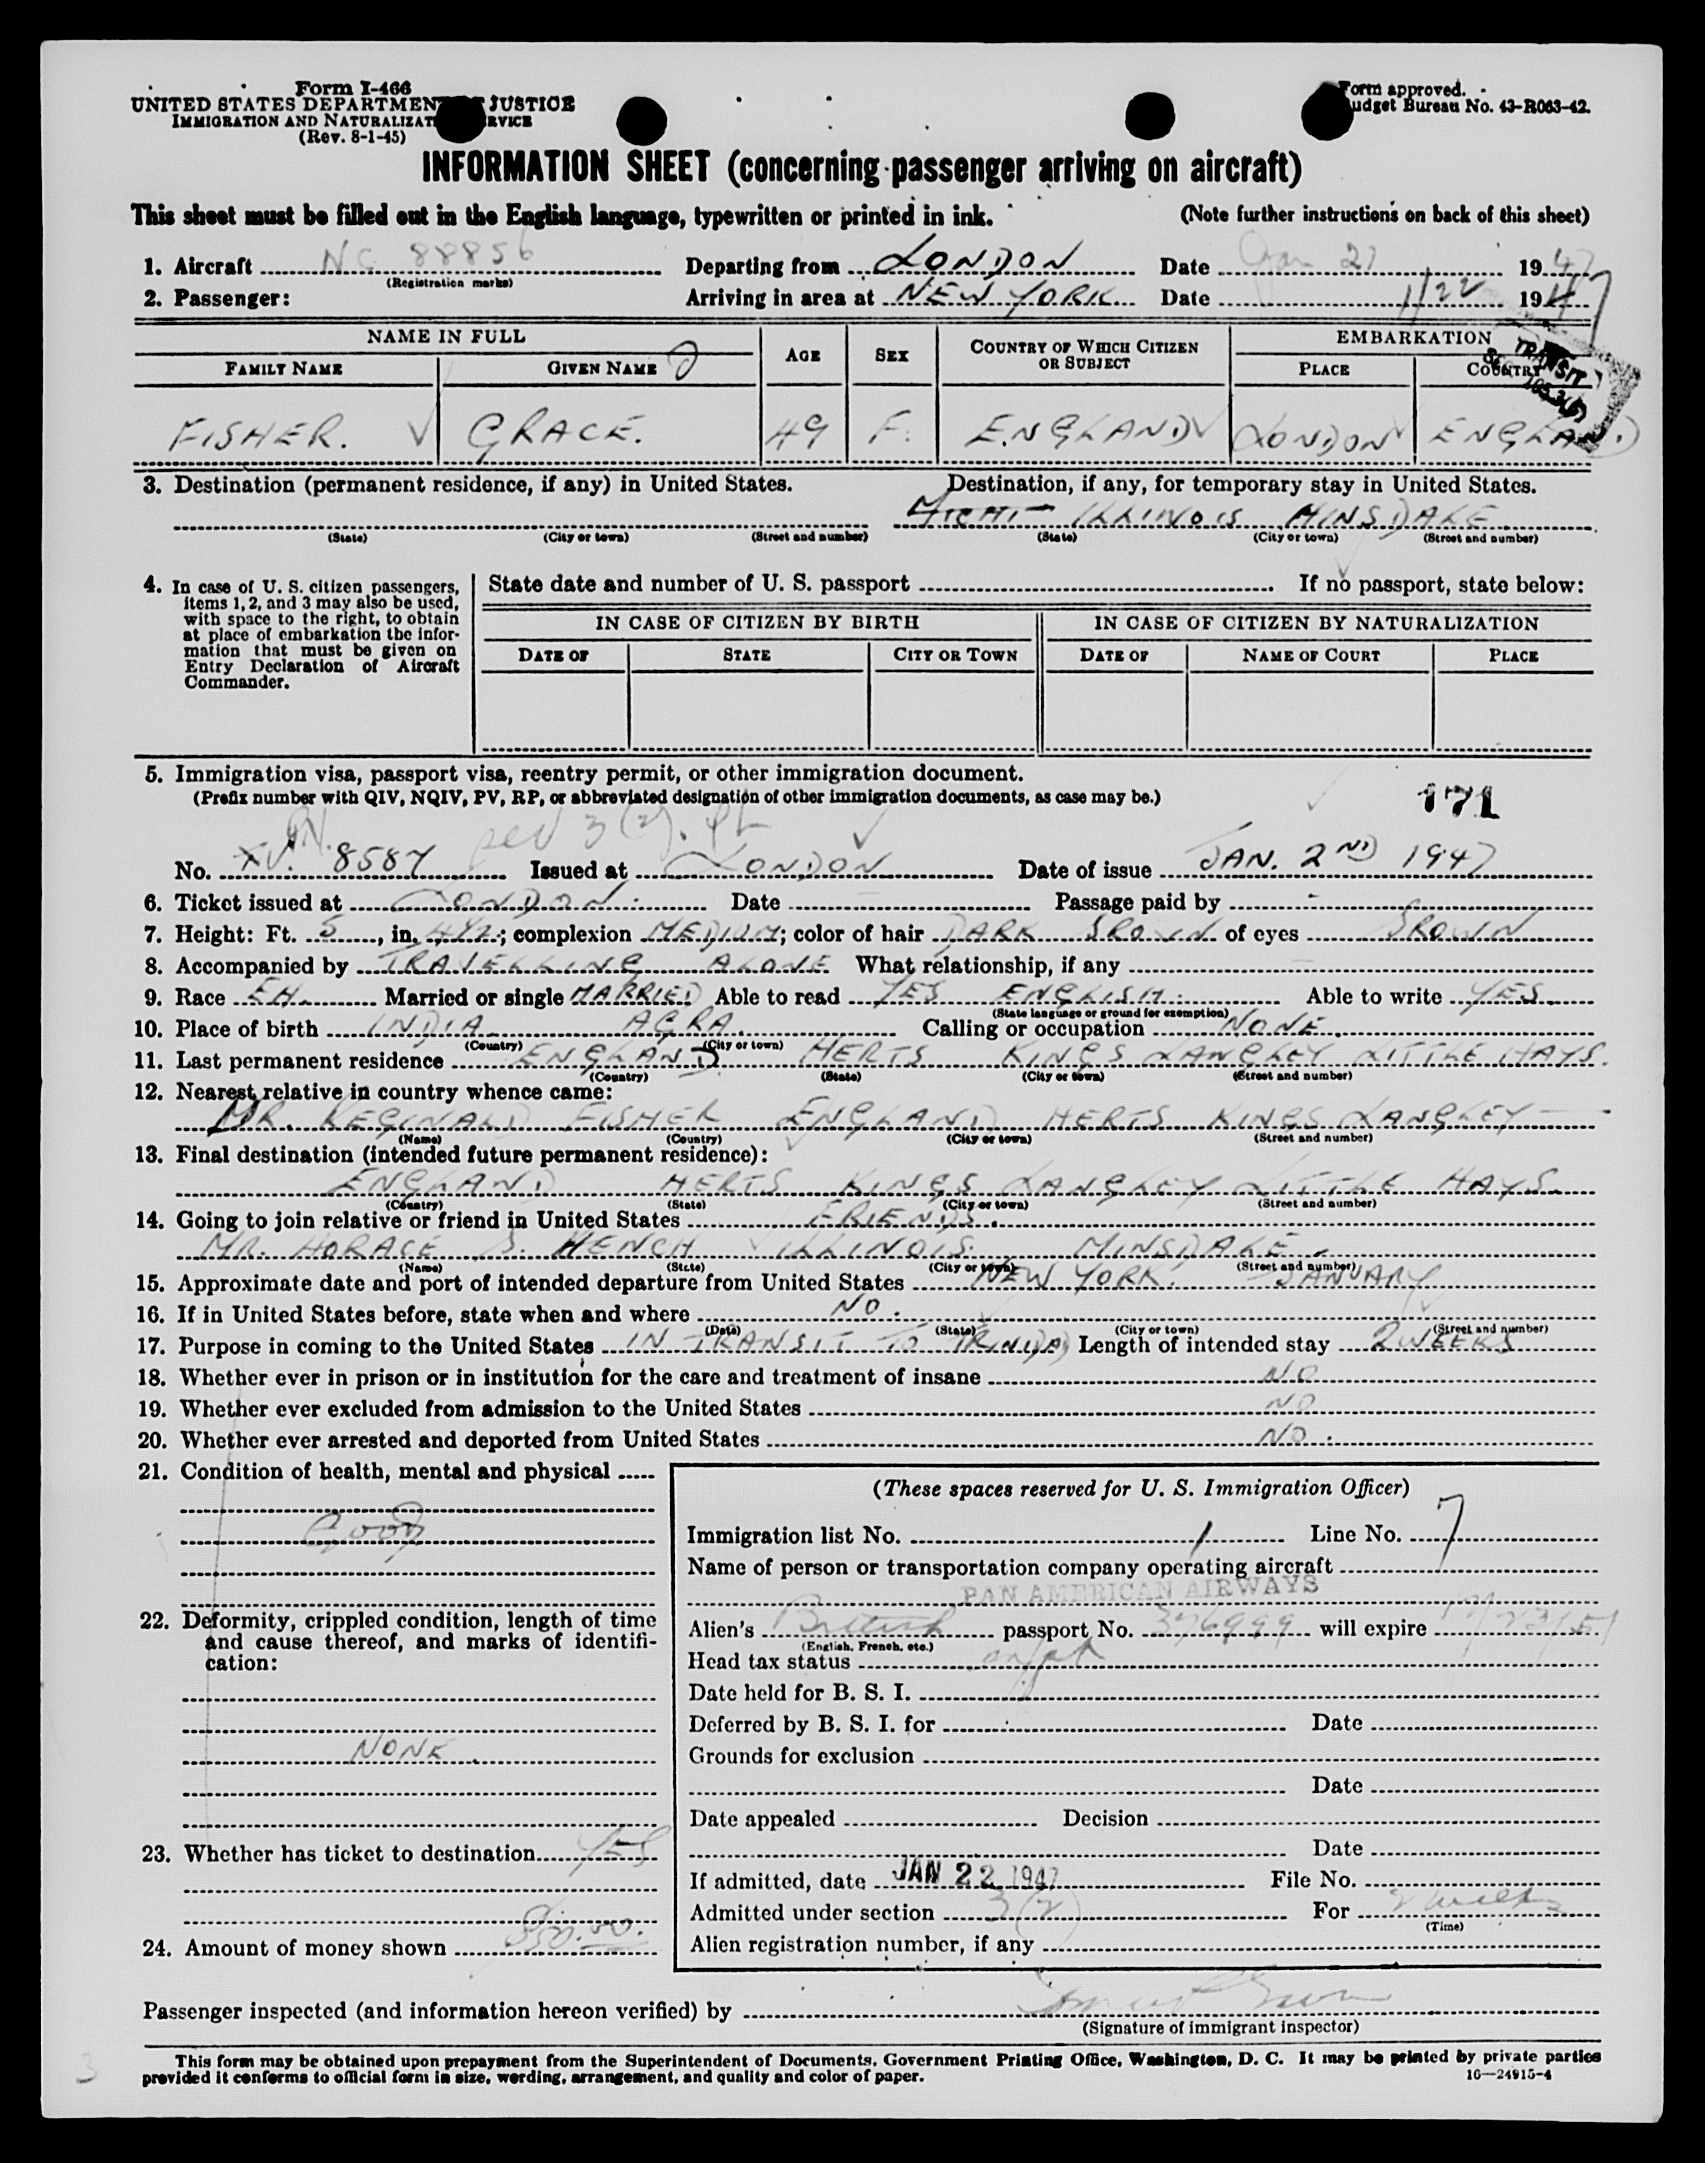 Form I-466
UNITED STATES DEPARTMENT JUSTICE
IMMIGRATION AND NATURALIZAT RVICE
(Rev. 8-1-45)
Form approved.
Budget Bureau No. 43-R063-42.
INFORMATION SHEET (concerning passenger arriving on aircraft)
This sheet must be filled out in the English language, typewritten or printed in ink. (Note further instructions on back of this sheet)
1. Aircraft NC 88856 Departing from LONDON Date Jan 21 1947
(Registration marks)
2. Passenger: Arriving in area at NEW YORK Date 1/22 1947
NAME IN FULL AGE SEX COUNTRY OF WHICH CITIZEN OR SUBJECT EMBARKATION
FAMILY NAME GIVEN NAME PLACE COUNTRY
TRANSIT
FISHER. GRACE. 49 F. ENGLAND LONDON ENGLAND
3. Destination (permanent residence, if any) in United States. Destination, if any, for temporary stay in United States.
ILLINOIS HINSDALE
(State) (City or town) (Street and number) (State) (City or town) (Street and number)
4. In case of U. S. citizen passengers, items 1, 2, and 3 may also be used, with space to the right, to obtain at place of embarkation the information that must be given on Entry Declaration of Aircraft Commander.
State date and number of U. S. passport If no passport, state below:
IN CASE OF CITIZEN BY BIRTH IN CASE OF CITIZEN BY NATURALIZATION
DATE OF STATE CITY OR TOWN DATE OF NAME OF COURT PLACE
5. Immigration visa, passport visa, reentry permit, or other immigration document.
(Prefix number with QIV, NQIV, PV, RP, or abbreviated designation of other immigration documents, as case may be.)
171
No. 8587 Issued at LONDON Date of issue JAN. 2ND 1947
6. Ticket issued at LONDON. Date Passage paid by -
7. Height: Ft. 5, in. 4½; complexion MEDIUM; color of hair DARK BROWN of eyes BROWN
8. Accompanied by TRAVELLING ALONE What relationship, if any
9. Race EH. Married or single MARRIED Able to read YES ENGLISH. Able to write YES.
(State language or ground for exemption)
10. Place of birth INDIA AGRA. Calling or occupation NONE.
(Country) (City or town)
11. Last permanent residence ENGLAND HERTS KINGS LANGLEY LITTLE HAYS.
(Country) (State) (City or town) (Street and number)
12. Nearest relative in country whence came:
MR. REGINALD FISHER ENGLAND HERTS KINGS LANGLEY
(Name) (Country) (City or town) (Street and number)
13. Final destination (intended future permanent residence):
ENGLAND HERTS KINGS LANGLEY LITTLE HAYS.
(Country) (State) (City or town) (Street and number)
14. Going to join relative or friend in United States FRIENDS.
MR. HORACE S. HENCH ILLINOIS. HINSDALE.
(Name) (State) (City or town) (Street and number)
15. Approximate date and port of intended departure from United States NEW YORK. JANUARY
16. If in United States before, state when and where NO.
(Date) (State) (City or town) (Street and number)
17. Purpose in coming to the United States IN TRANSIT TO TRINIDAD Length of intended stay 2 WEEKS
18. Whether ever in prison or in institution for the care and treatment of insane NO
19. Whether ever excluded from admission to the United States NO
20. Whether ever arrested and deported from United States NO.
21. Condition of health, mental and physical
Good
22. Deformity, crippled condition, length of time and cause thereof, and marks of identification:
NONE.
23. Whether has ticket to destination YES
24. Amount of money shown
(These spaces reserved for U. S. Immigration Officer)
Immigration list No. 1 Line No. 7
Name of person or transportation company operating aircraft
PAN AMERICAN AIRWAYS
Alien's British passport No. 376999 will expire
(English, French, etc.)
Head tax status
Date held for B. S. I.
Deferred by B. S. I. for Date
Grounds for exclusion
Date
Date appealed Decision
Date
If admitted, date JAN 22 1947 File No.
Admitted under section 3(2) For 2 weeks
(Time)
Alien registration number, if any
Passenger inspected (and information hereon verified) by
(Signature of immigrant inspector)
This form may be obtained upon prepayment from the Superintendent of Documents, Government Printing Office, Washington, D. C. It may be printed by private parties
provided it conforms to official form in size, wording, arrangement, and quality and color of paper.
16—24915-4
3